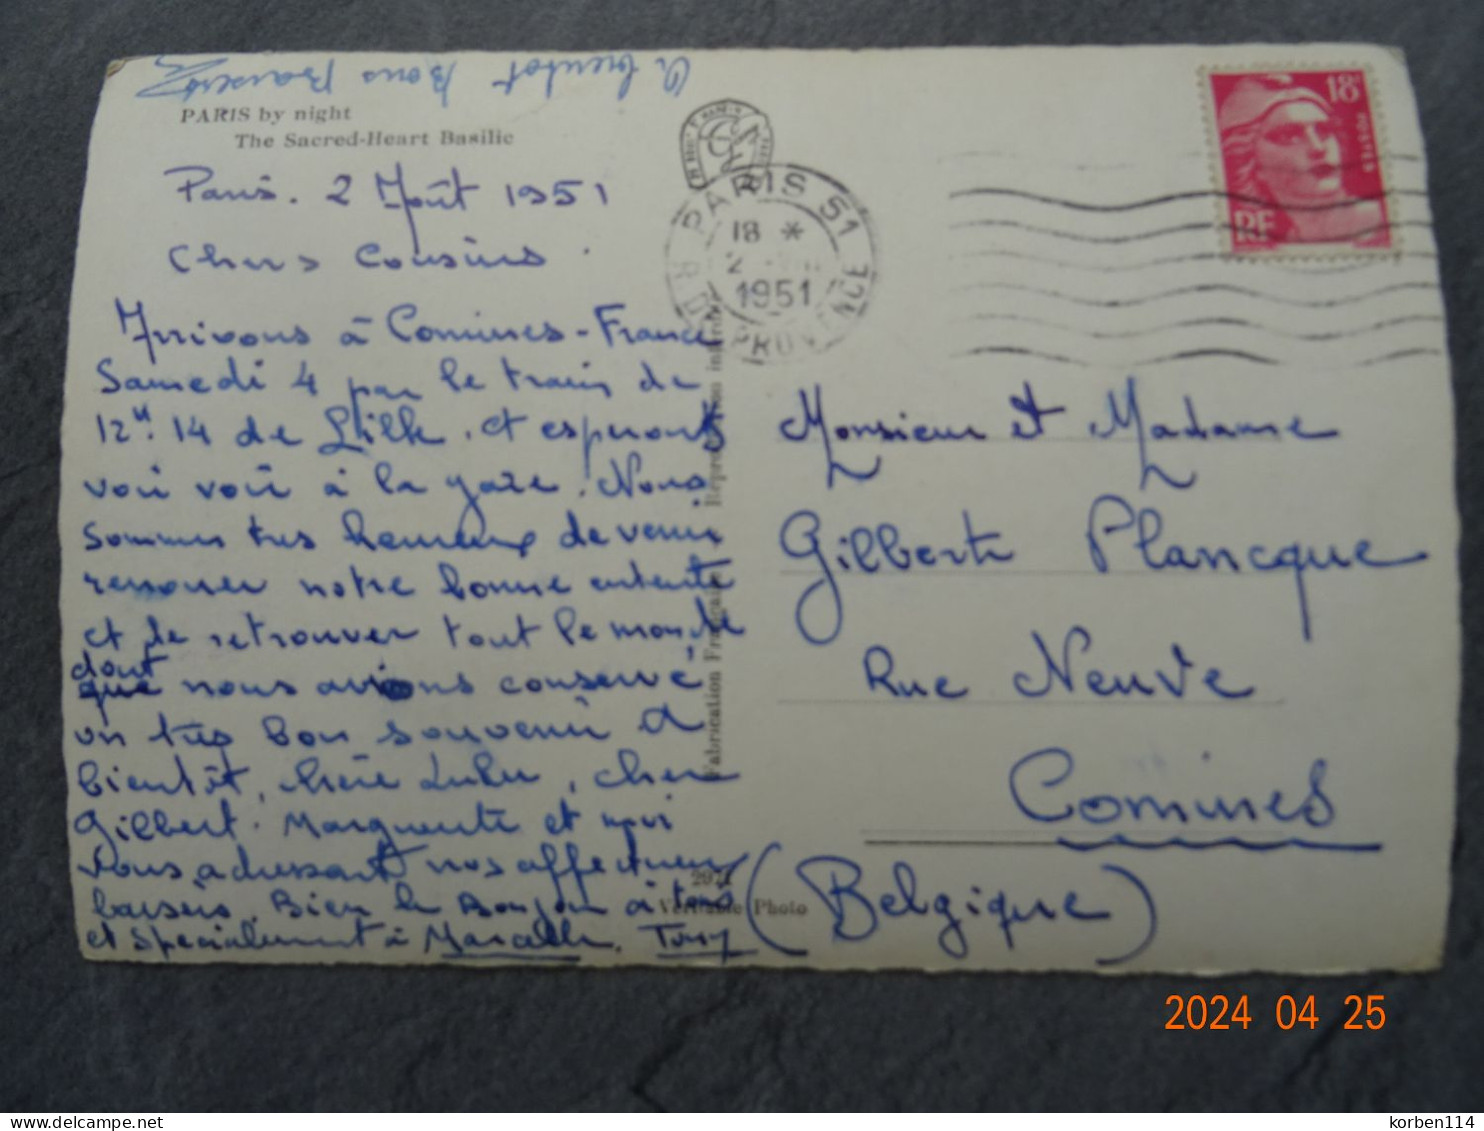 A bientot Bons Baisers
PARIS by night
The Sacred-Heart Basilic
Paris. 2 Août 1951
Chers Cousins.
Arrivons à Comines-France
Samedi 4 par le train de
12H. 14 de Lille. et esperons
voir à la gare. Nous
sommes très heureux de venir
renouer notre bonne entente
et de retrouver tout le monde
dont
que nous avions conservé
un très bon souvenir A
bientôt, chère Lulu, cher
Gilbert. Marguerite et moi
vous adressant nos affectueux
baisers. Bien le Bonjour à tous
et spécialement à Marcelle.
PARIS 51
18 *
2
1951
R. DE PROVENCE
18F
POSTES
RF
Reproduction interdite
Fabrication Française
Véritable Photo
Monsieur et Madame
Gilbert Plancque
Rue Neuve
Comines
(Belgique)
2024 04 25
korben114